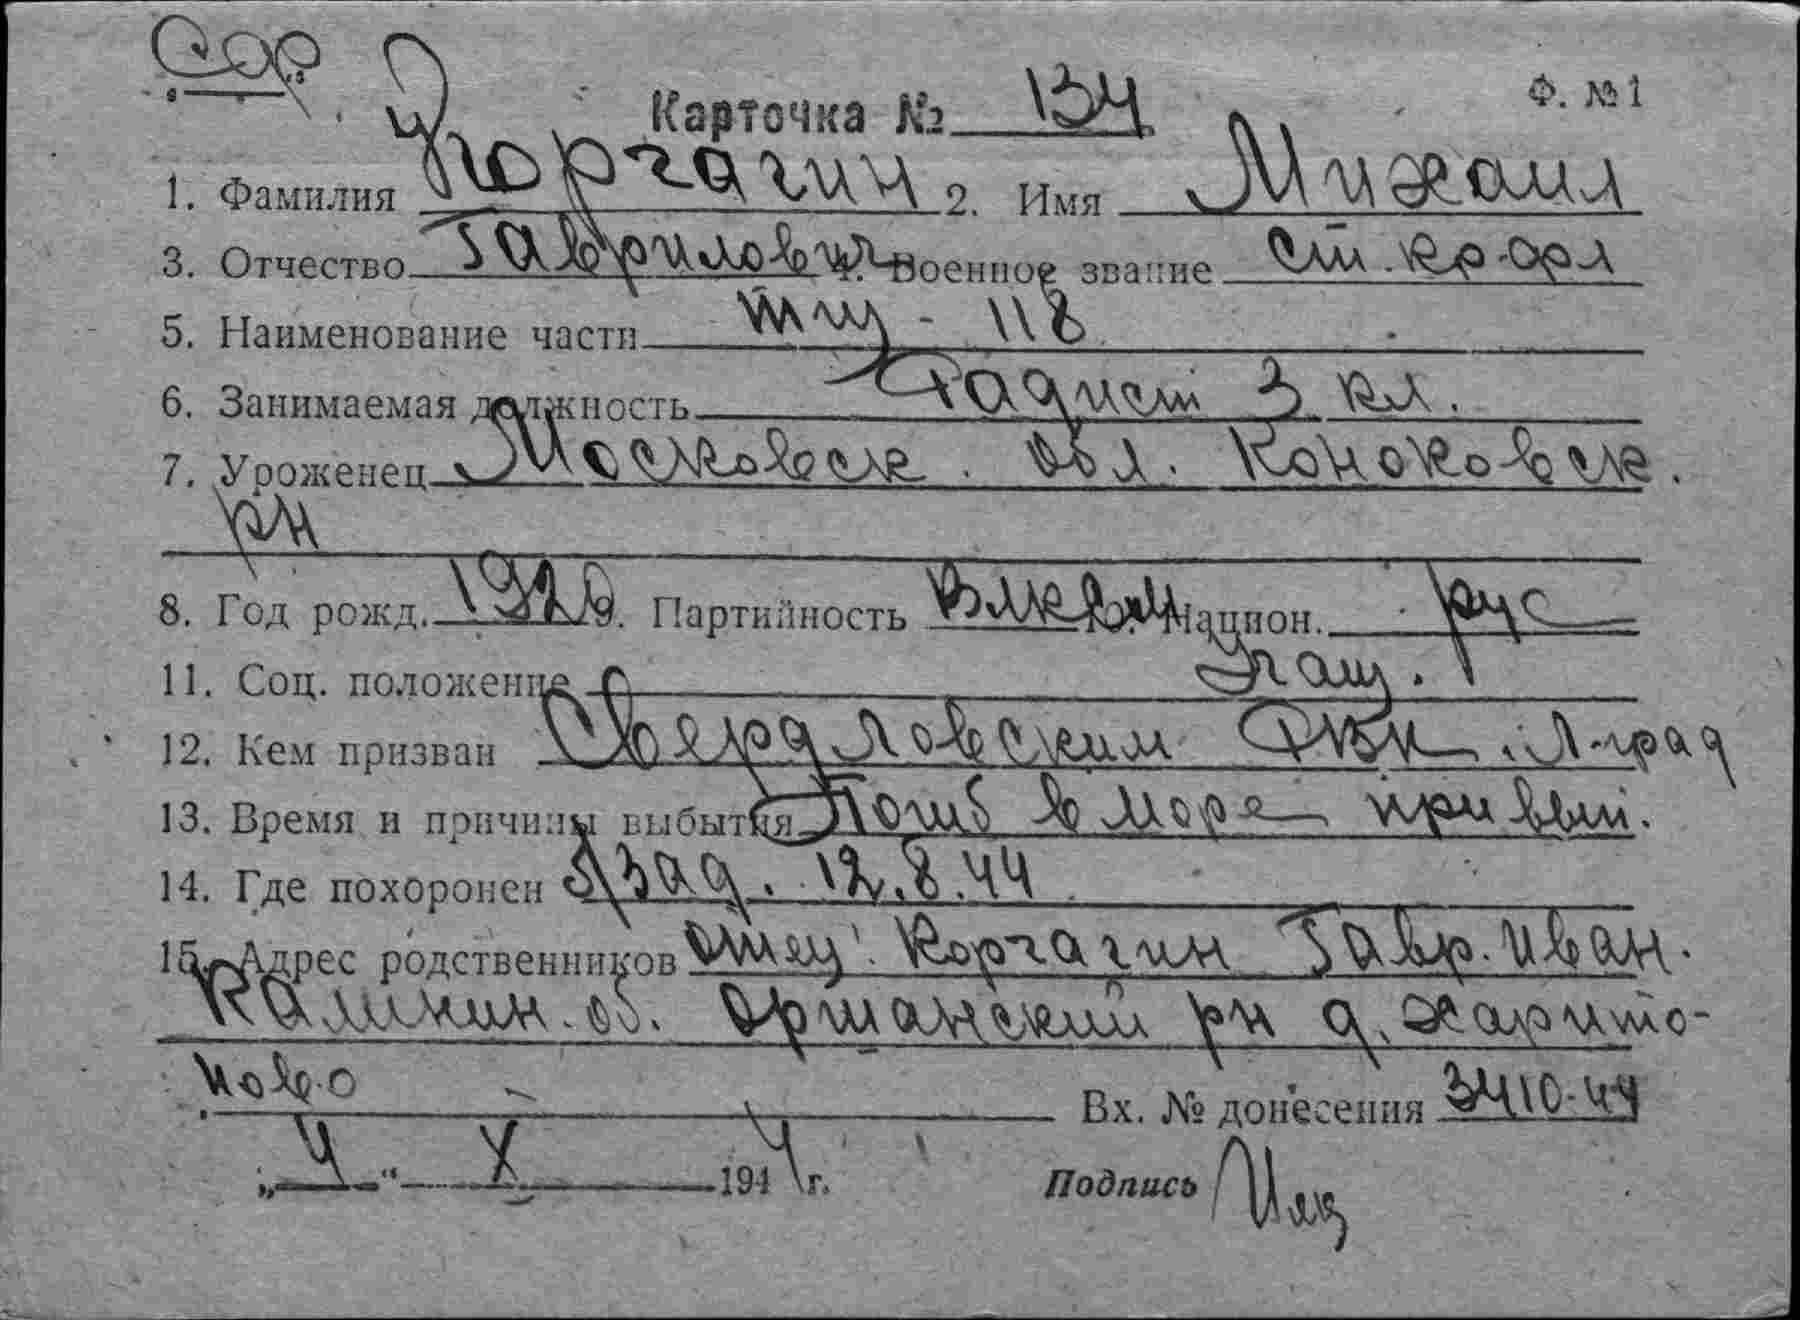 Ф. №1
Карточка № 134
1. Фамилия Корчагин 2. Имя Михаил
3. Отчество Гаврилович 4. Военное звание ст. кр-фл
5. Наименование части тщ - 118
6. Занимаемая должность Радист 3 кл.
7. Уроженец Московск. обл. Конаковск.
рн
8. Год рожд. 9. Партийность ВЛКСМ 10. Национ. рус
11. Соц. положение
12. Кем призван Свердловским РВК, Л-град
13. Время и причины выбытия Погиб в море при вып.
14. Где похоронен б/зад. 12.8.44
15. Адрес родственников отец. Корчагин Гавр. Иван.
Калинин. об. Оршанский рн д. Харито-
ново
Вх. № донесения 3410-44
„ 4 “ X 1944 г. Подпись